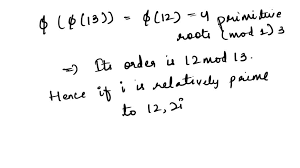 ϕ (ϕ(13)) = ϕ(12) = 4 primitive
roots (mod 1)3
=) Its order is 12 mod 13.
Hence if i is relatively prime
to 12, 2i